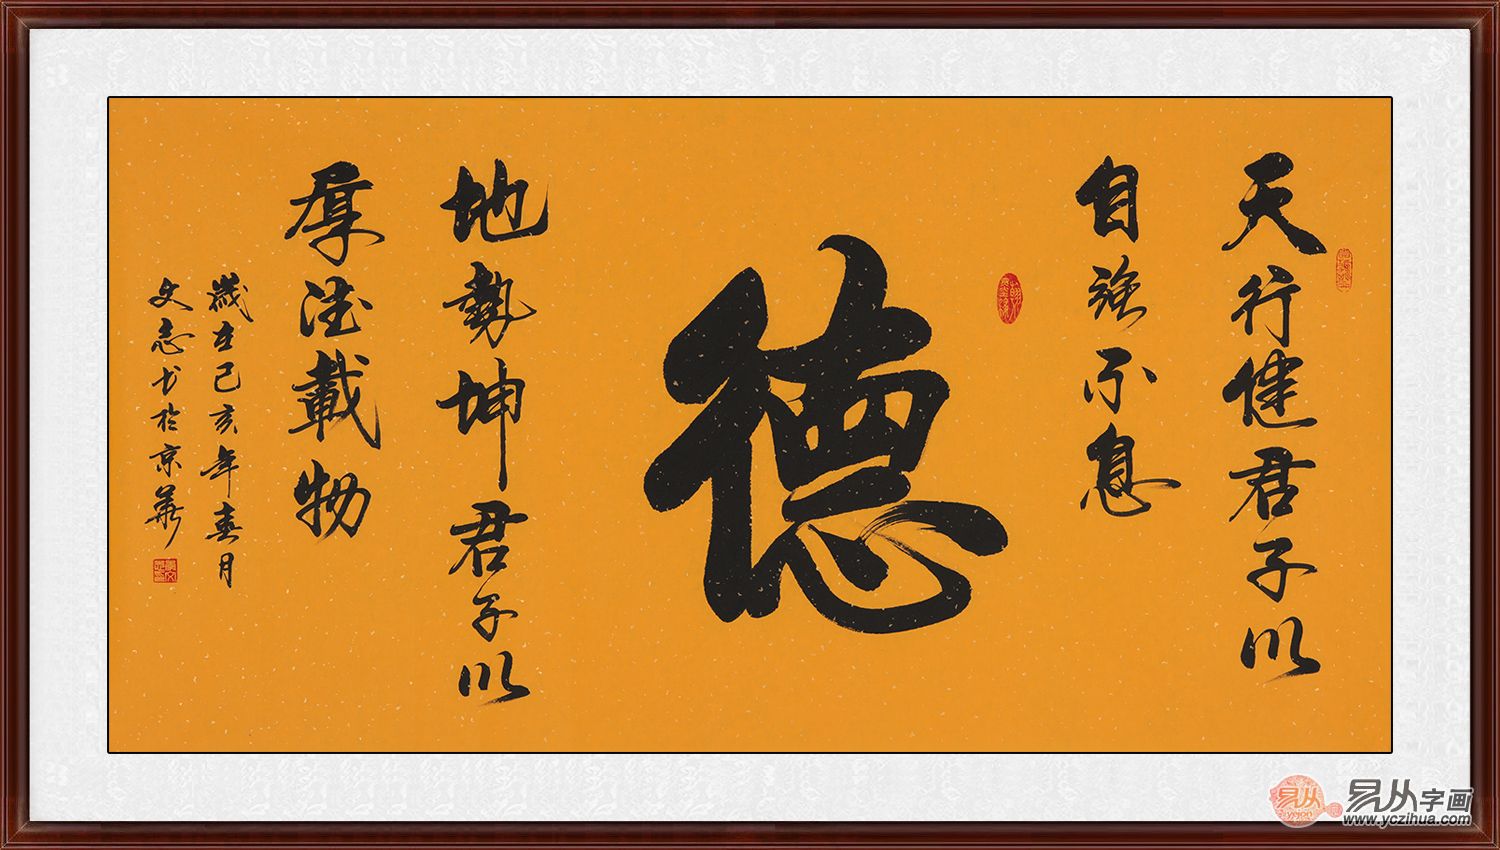 天行健君子以
自强不息
德
地勢坤君子以
厚德載物
歲在己亥年春月
文志书於京華
易从字画
www.yczihua.com